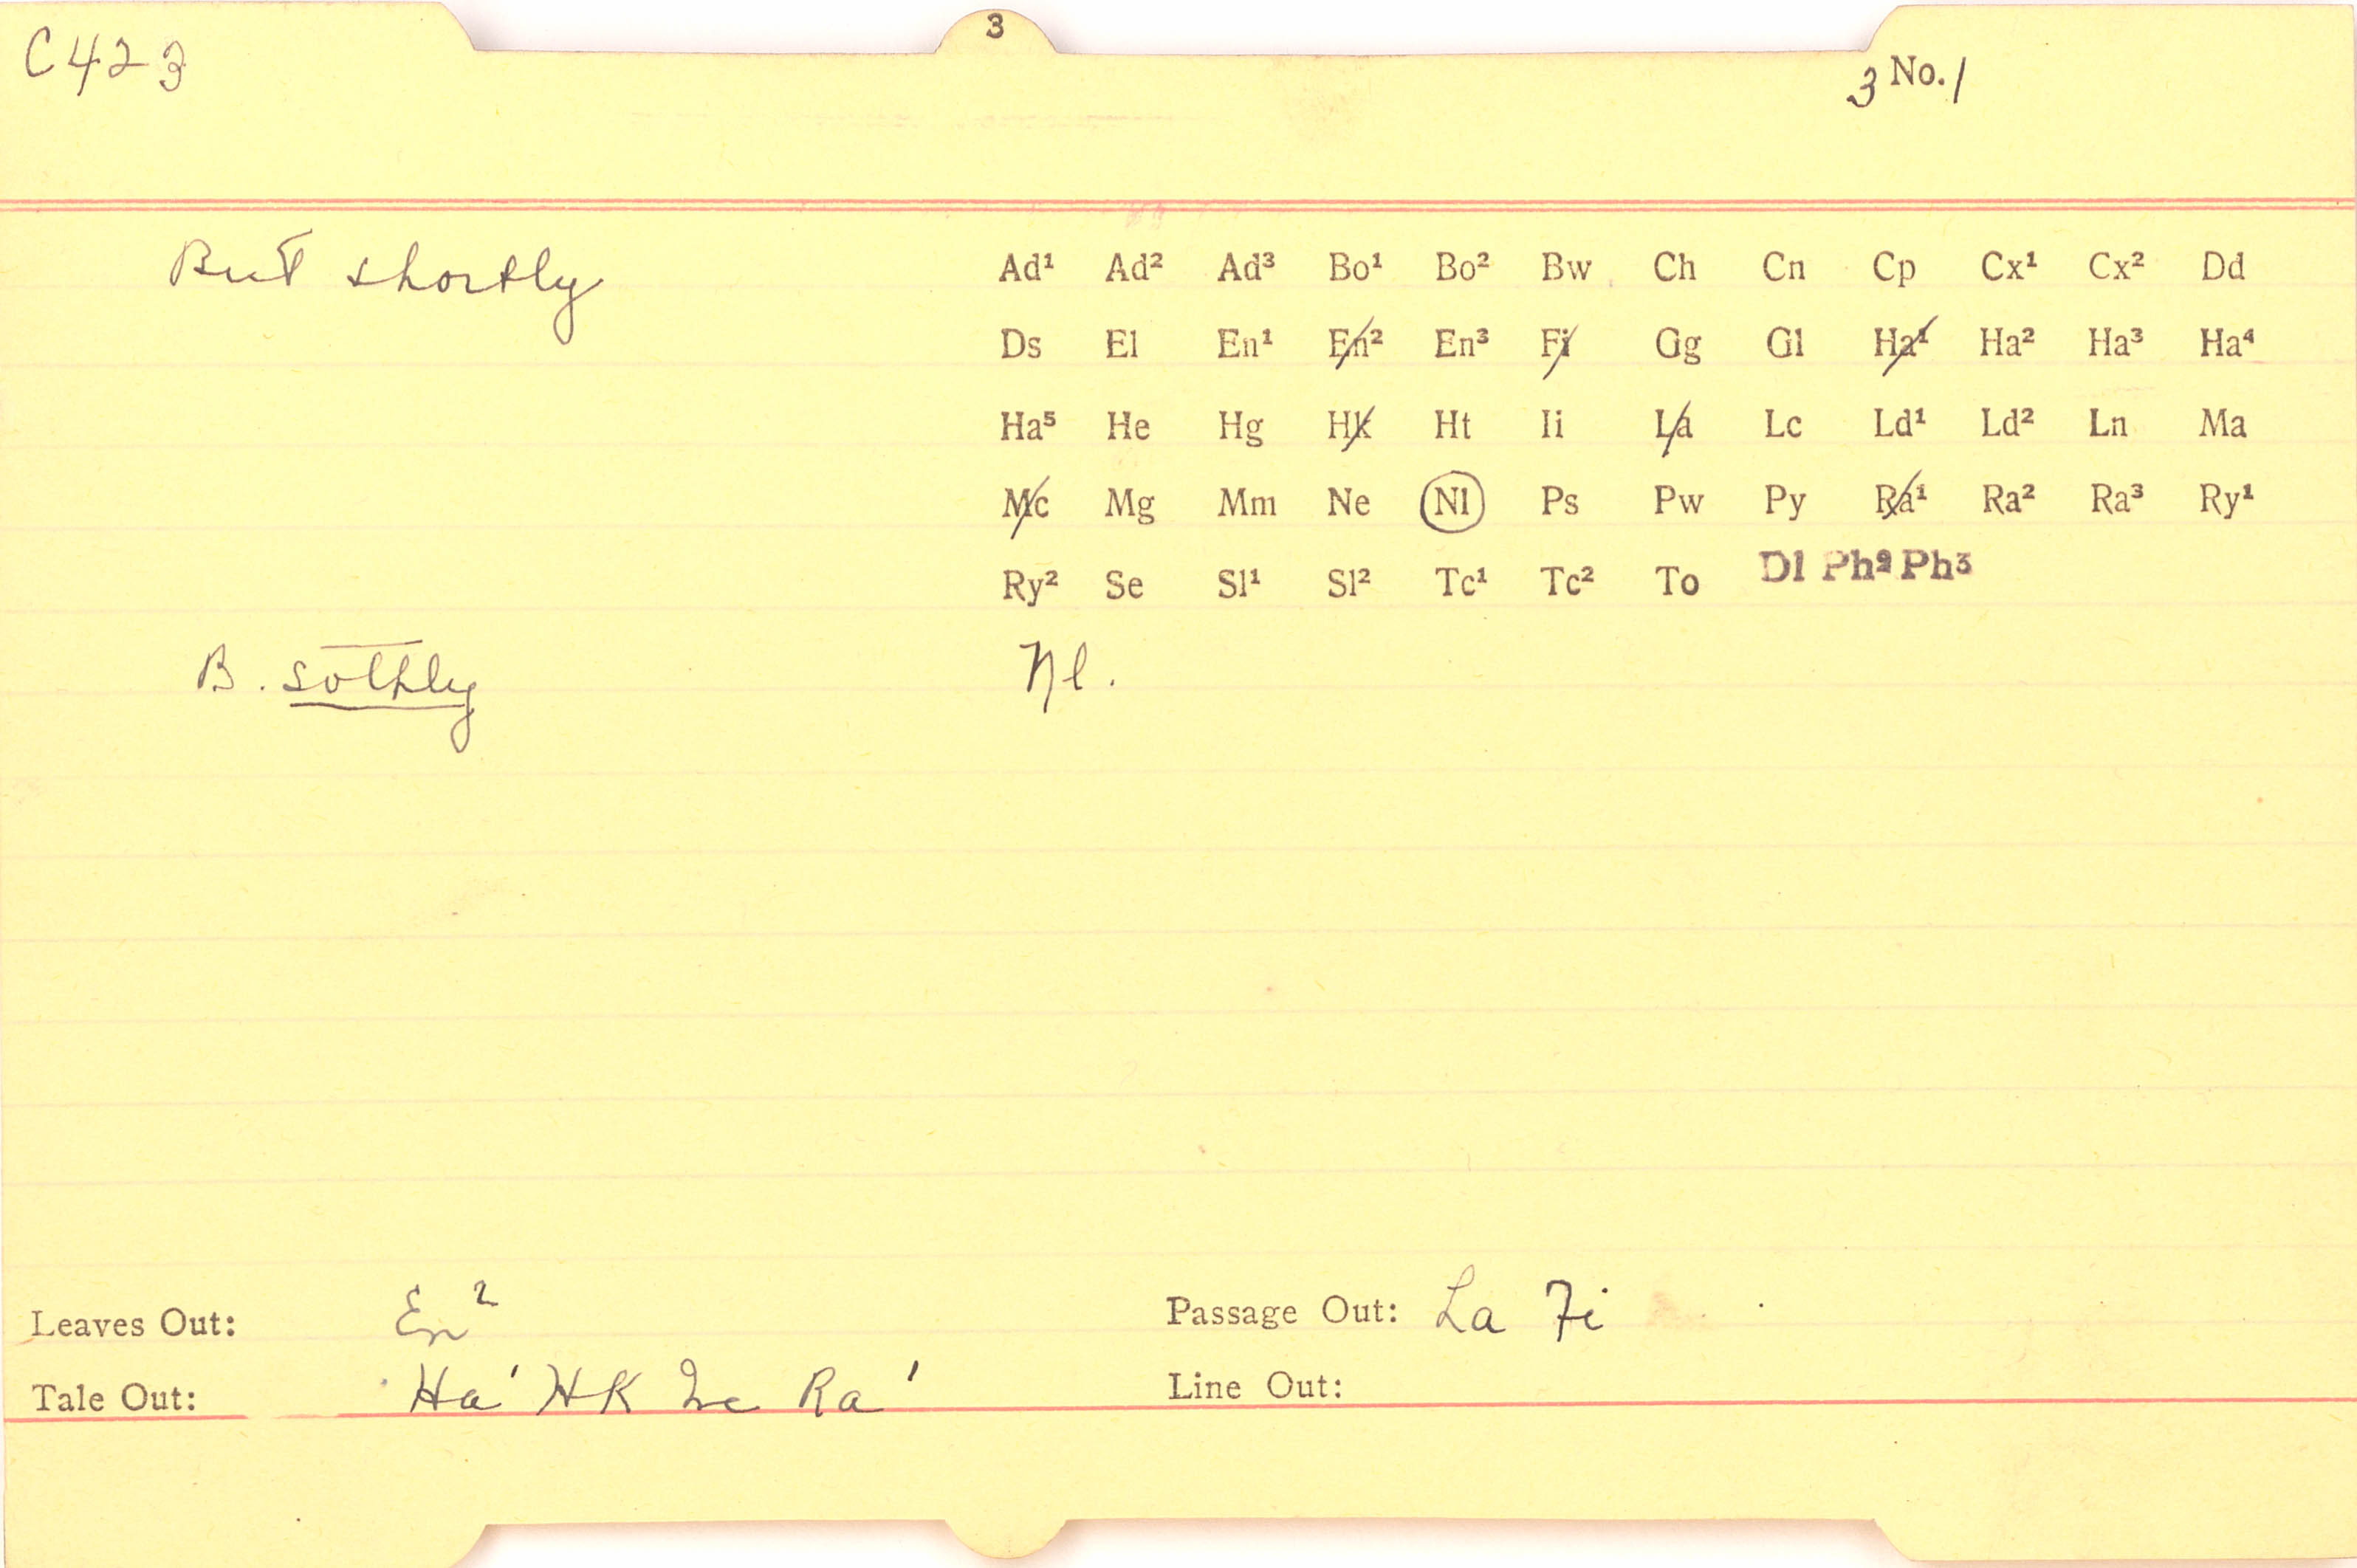 3
C423
3 No. 1
But shortly
Ad¹ Ad² Ad³ Bo¹ Bo² Bw Ch Cn Cp Cx¹ Cx² Dd
Ds El En¹ En² En³ Fi Gg Gl Ha¹ Ha² Ha³ Ha⁴
Ha⁵ He Hg Hk Ht Ii La Lc Ld¹ Ld² Ln Ma
Mc Mg Mm Ne Nl Ps Pw Py Ra¹ Ra² Ra³ Ry¹
Ry² Se Sl¹ Sl² Tc¹ Tc² To Dl Ph² Ph³
B. sothly Nl.
Leaves Out: En² Passage Out: La Fi
Tale Out: Ha¹ HK Mc Ra¹ Line Out: